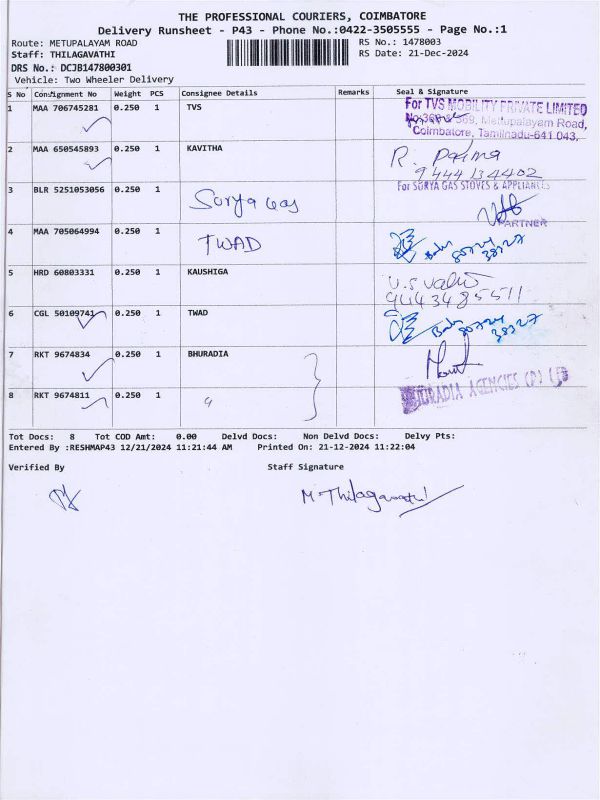 THE PROFESSIONAL COURIERS, COIMBATORE
Delivery Runsheet - P43 - Phone No.:0422-3505555 - Page No.:1
Route: METUPALAYAM ROAD RS No.: 1478003
Staff: THILAGAVATHI RS Date: 21-Dec-2024
DRS No.: DCJB147800301
Vehicle: Two Wheeler Delivery
S No Consignment No Weight PCS Consignee Details Remarks Seal & Signature
1 MAA 706745281 0.250 1 TVS For TVS MOBILITY PRIVATE LIMITED
Mettupalayam Road,
Coimbatore, Tamilnadu-641 043.
2 MAA 650545893 0.250 1 KAVITHA R. Padma
9444134402
3 BLR 5251053056 0.250 1 Surya Gas For SURYA GAS STOVES & APPLIANCES
PARTNER
4 MAA 705064994 0.250 1 TWAD
5 HRD 60803331 0.250 1 KAUSHIGA
9443485511
6 CGL 50109741 0.250 1 TWAD
7 RKT 9674834 0.250 1 BHURADIA
8 RKT 9674811 0.250 1 BHURADIA AGENCIES (P) LTD
Tot Docs: 8 Tot COD Amt: 0.00 Delvd Docs: Non Delvd Docs: Delvy Pts:
Entered By :RESHMAP43 12/21/2024 11:21:44 AM Printed On: 21-12-2024 11:22:04
Verified By Staff Signature
M. Thilagavathi